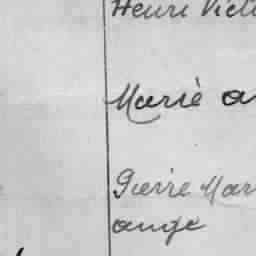 Henri Vict
Marie a
Pierre Mar
ange